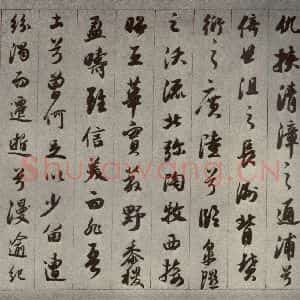 仇挾清漳之通浦兮
倚曲沮之長洲背墳
衍之廣陸兮臨皋隰
之沃流北弥陶牧西接
昭丘華實蔽野黍稷
盈疇雖信美而非吾
土兮曾何足以少留遭
紛濁而遷逝兮漫逾紀
Shufawang.CN